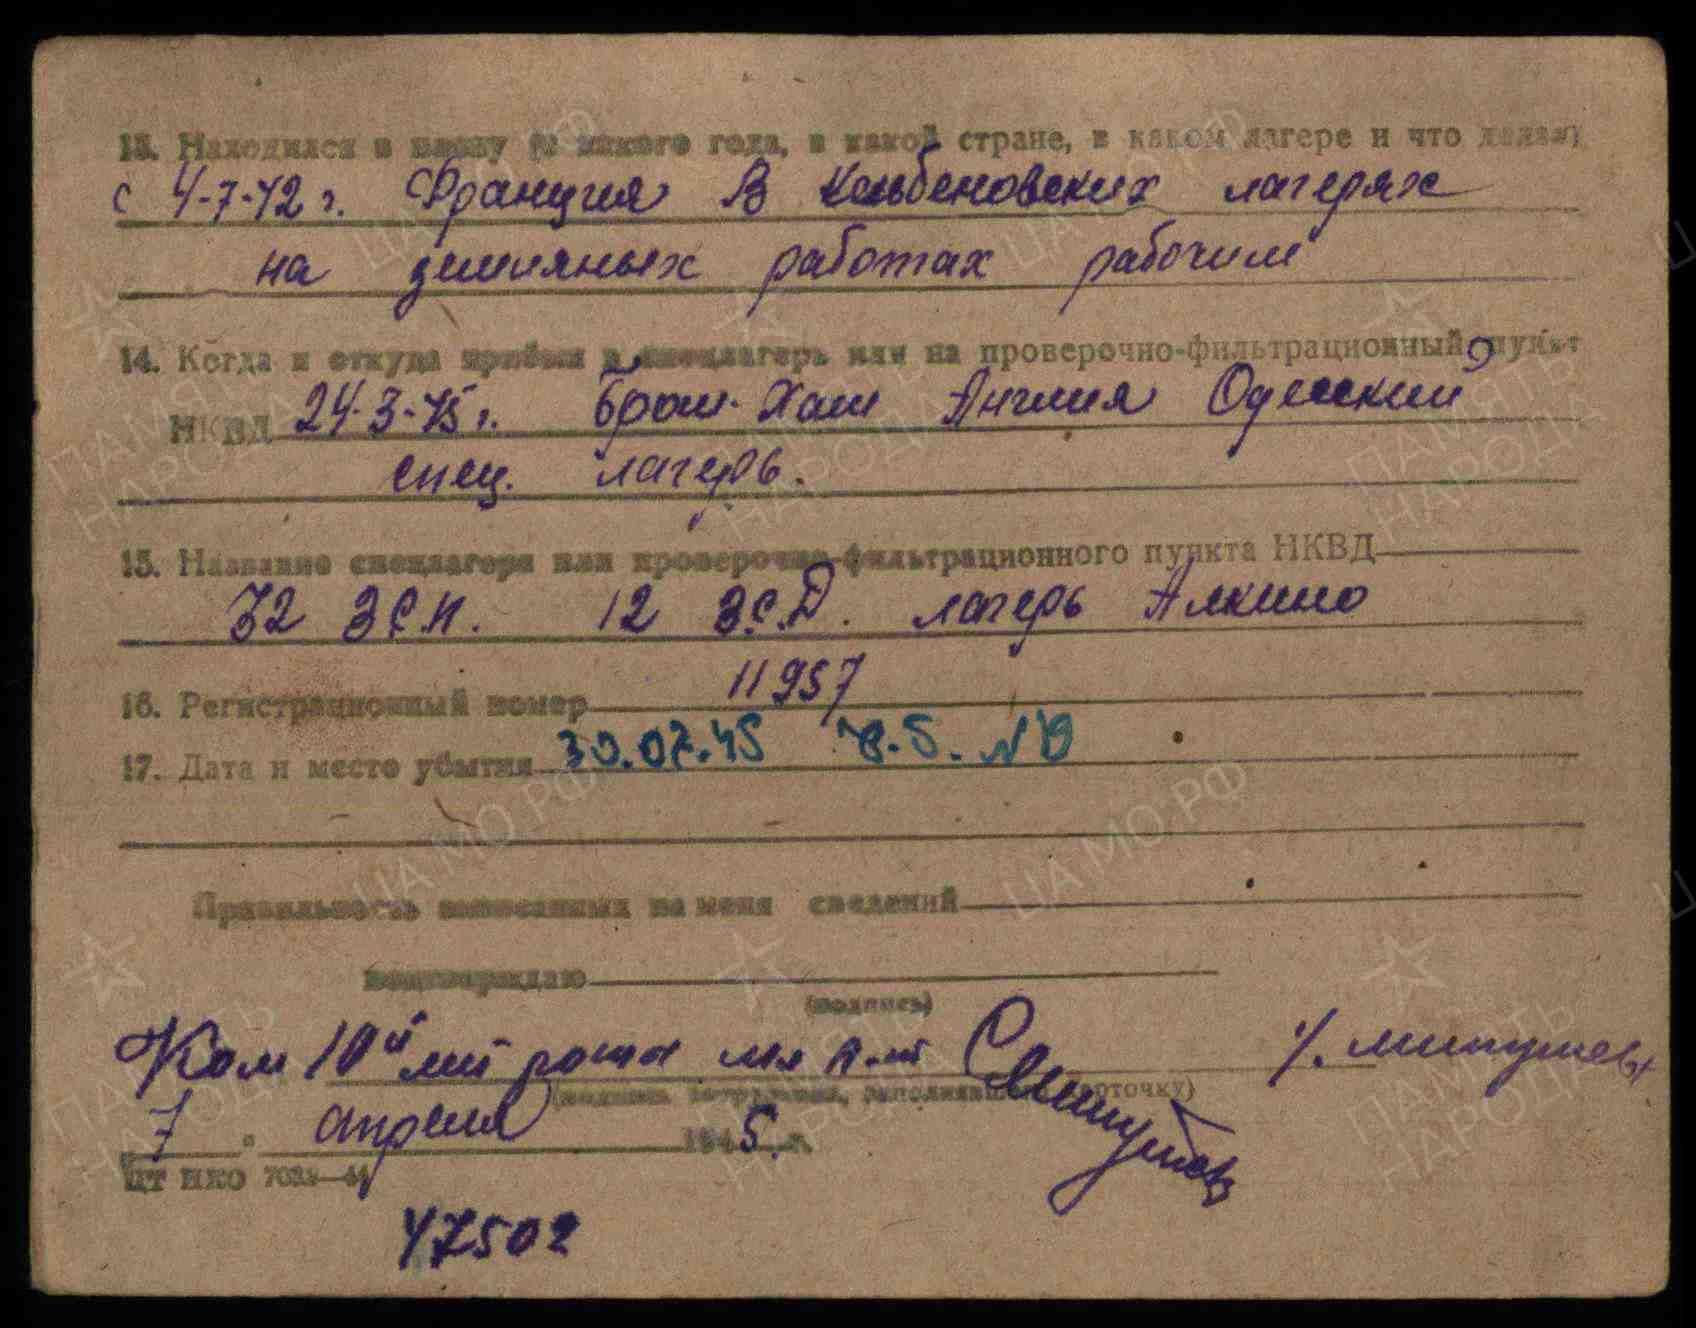 13. Находился в плену (с какого года, в какой стране, в каком лагере и что делал)
с 4-7-42 г. Франция В Кольбеновских лагерях
на земляных работах рабочим
14. Когда и откуда прибыл в спецлагерь или на проверочно-фильтрационный пункт
НКВД 24-3-45 г. Брам-Хам Англия Одесский
спец. лагерь.
15. Название спецлагеря или проверочно-фильтрационного пункта НКВД
32 З.С.П. 12 З.С.Д. лагерь Алкино
16. Регистрационный номер 11957
17. Дата и место убытия 30.07.45
Правильность записанных на меня сведений
подтверждаю
(подпись)
Ком 10й роты
(подпись сотрудника, заполнявшего карточку)
7 апреля 1945 г.
ЦТ НКО 7033—44
47502
ПАМЯТЬ НАРОДА
ЦАМО.РФ